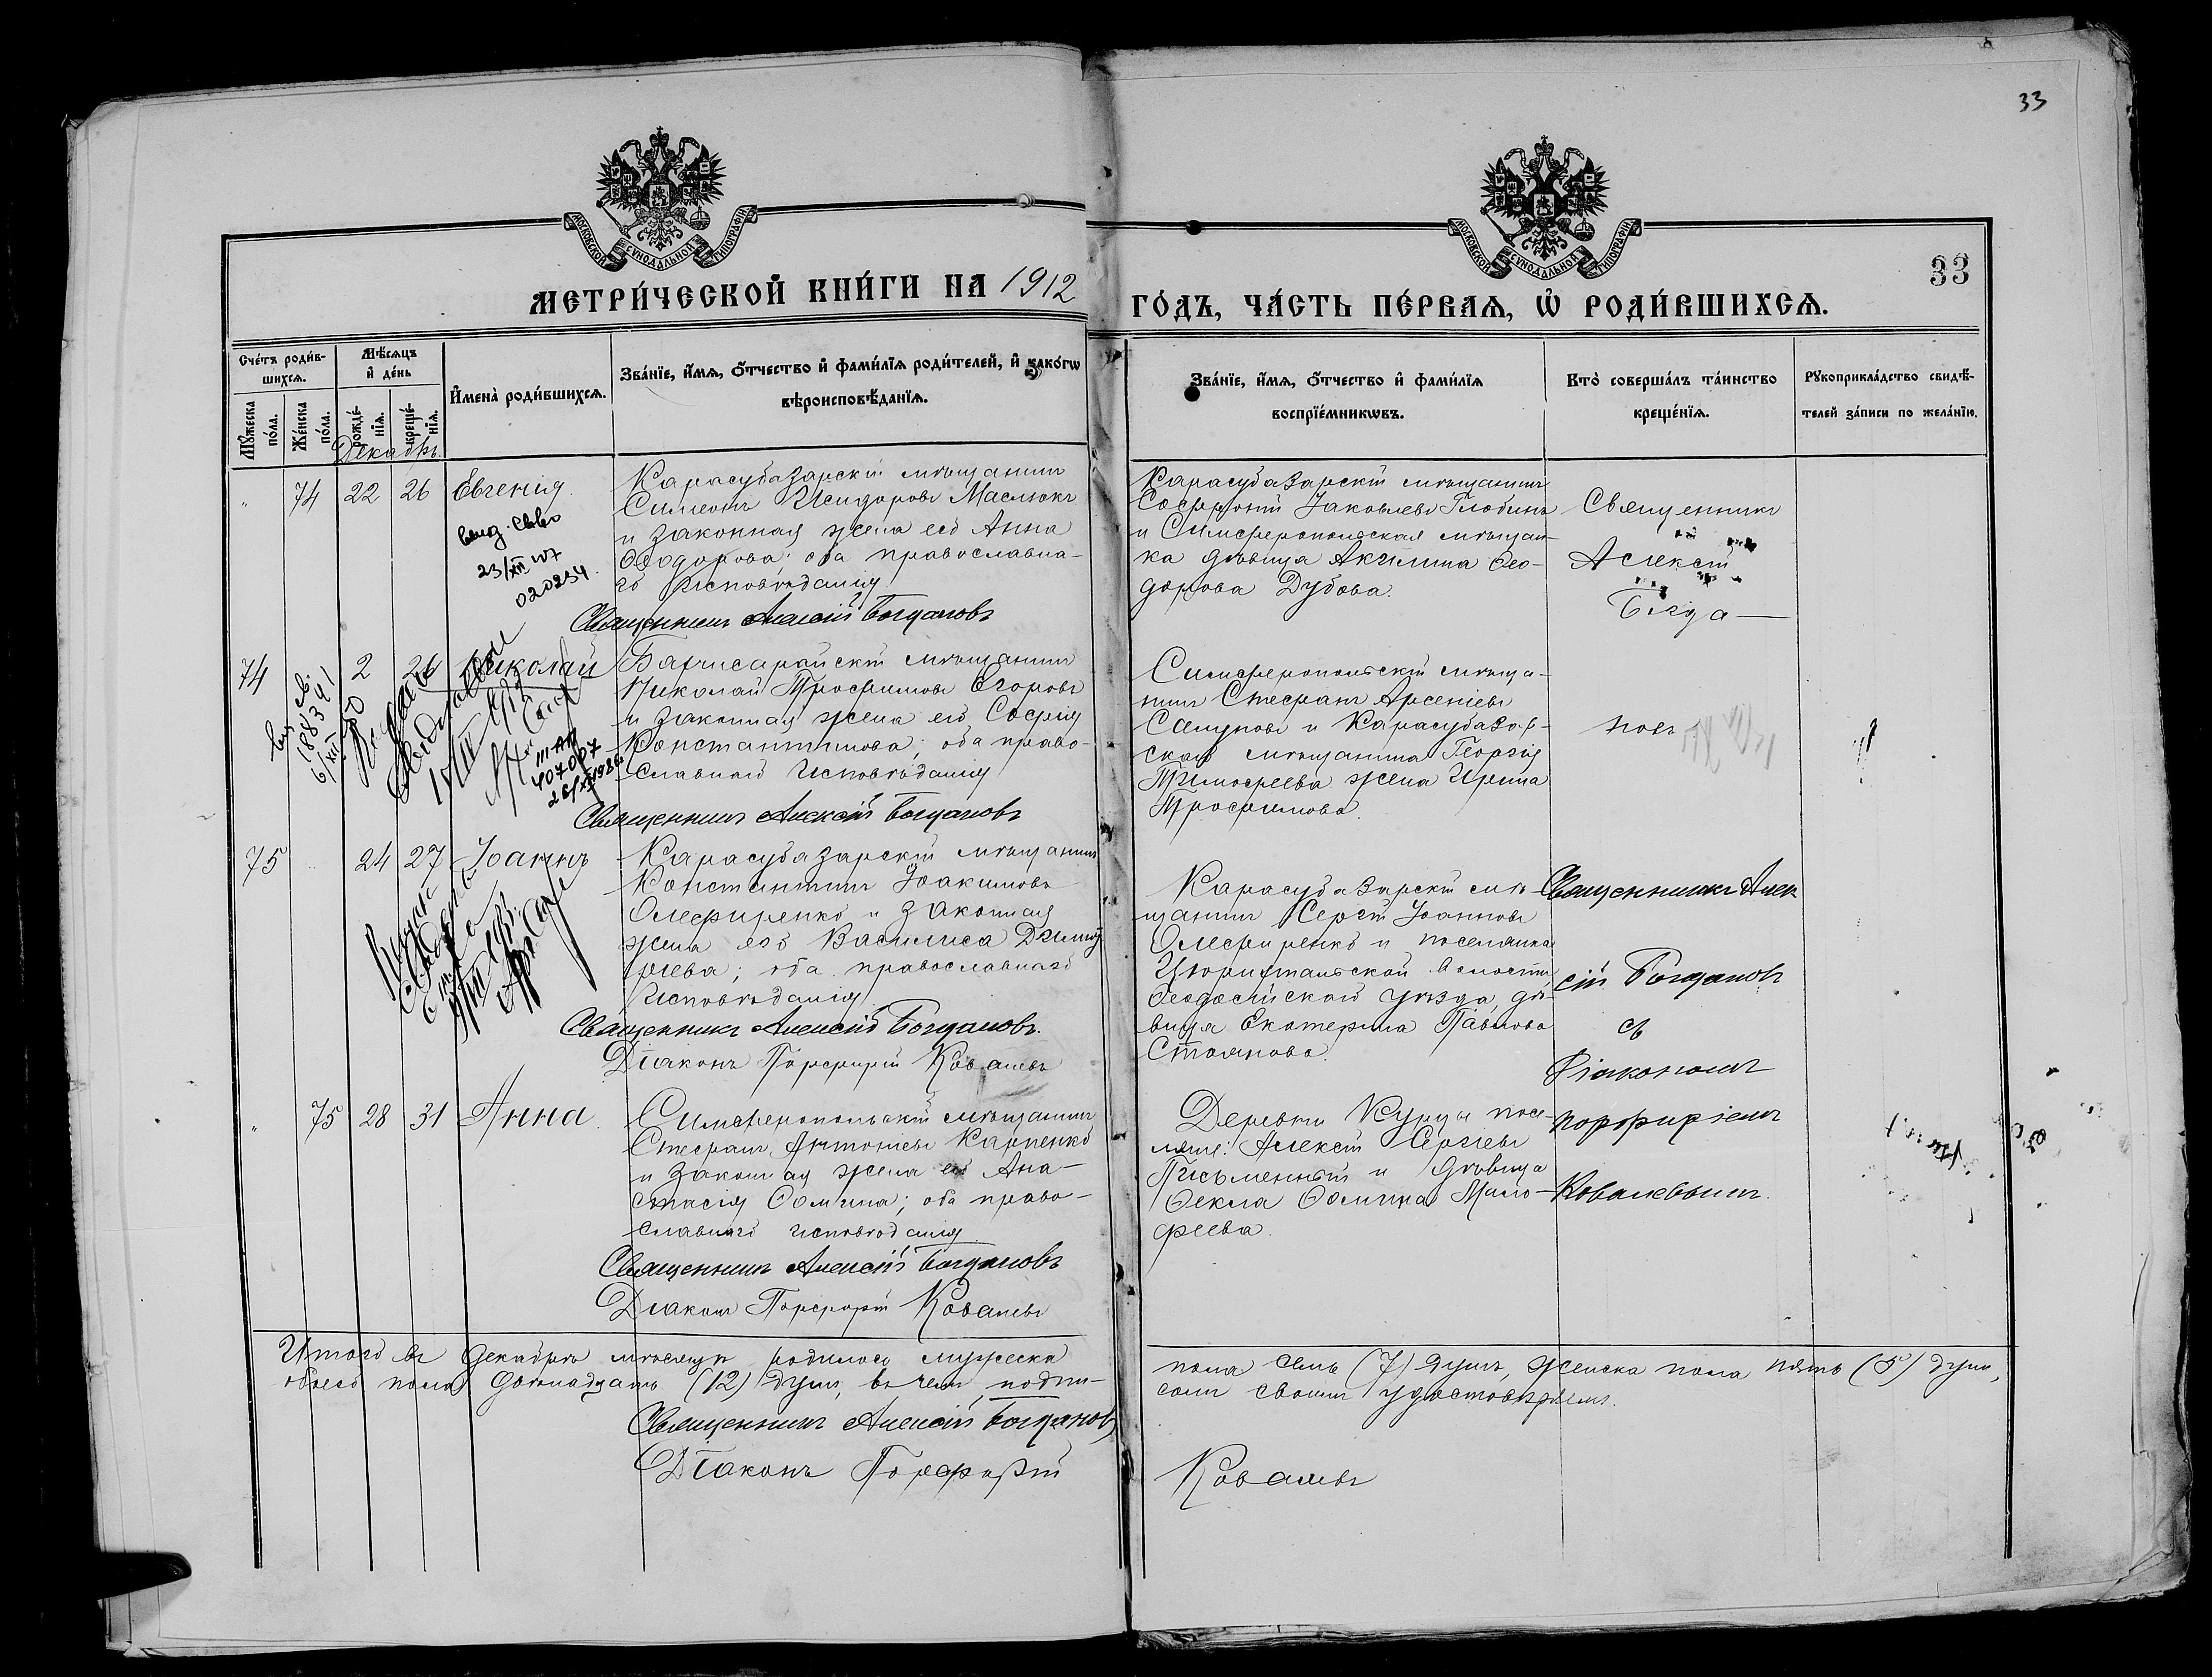 33
МОСКОВСКОЙ СѴНОДАЛЬНОЙ ТИПОГРАФІИ
МОСКОВСКОЙ СѴНОДАЛЬНОЙ ТИПОГРАФІИ
33
МЕТРИ́ЧЕСКОЙ КНИ́ГИ НА 1912
ГО́ДЪ, ЧА́СТЬ ПЕ́РВАЯ, Ѡ҆ РОДИ́ВШИХСѦ.
Сче́тъ роди́в-
шихсѧ.
Мѣ́сѧцъ
и҆ де́нь
Мꙋ́жеска по́ла.
Же́нска по́ла.
рожде́-нїѧ.
креще́-нїѧ.
И҆мена̀ роди́вшихсѧ.
Зва́нїе, и҆́мѧ, ѻ҆́тчество и҆ фами́лїѧ роди́телей, и҆ како́гѡ
вѣроисповѣ́данїѧ.
Зва́нїе, и҆́мѧ, ѻ҆́тчество и҆ фами́лїѧ
воспрїе́мникѡвъ.
Кто̀ соверша́лъ та́инство
креще́нїѧ.
Рꙋкоприкла́дство свидѣ́-
телей за́писи по жела́нїю.
Декабрь
" 74 22 26 Евгенія
Карасубазарскій мѣщанинъ
Симеонъ Исидоровъ Маслюкъ
и законная жена его Анна
Ѳеодорова; оба православна-
го исповѣданія
Священникъ Алексій Богдановъ
23/XII
020254
Карасубазарскій мѣщанинъ
Софроній Іаковлевъ
и Симферопольская мѣщан-
ка дѣвица Акилина Ѳео-
дорова Дубова.
Священникъ
Алексій
Богда-
74 2 26 Николай
Бахчисарайскій мѣщанинъ
Николай Трофимовъ Егоровъ
и законная жена его Софія
Константинова; оба право-
славнаго исповѣданія
Священникъ Алексій Богдановъ
188341
III-АП
407087
Симферопольскій мѣща-
нинъ Стефанъ Арсеніевъ
и Карасубазар-
скаго мѣщанина Георгія
Тимофеева жена Ирина
Трофимова.
новъ
75 24 27 Іоаннъ
Карасубазарскій мѣщанинъ
Константинъ Іоакимовъ
Олефиренко и законная
жена его Василиса Димит-
ріева; оба православнаго
исповѣданія
Священникъ Алексій Богдановъ.
Діаконъ Порфирій Ковалевъ
Карасубазарскій мѣ-
щанинъ Сергій Іоанновъ
Олефиренко и поселянка
Цюрихтальской волости
Ѳеодосійскаго уѣзда, дѣ-
вица Екатерина Павлова
Стоянова.
Священникъ Алек-
сій Богдановъ
съ
Діакономъ
Порфиріемъ
Ковалевымъ.
" 75 28 31 Анна
Симферопольскій мѣщанинъ
Стефанъ Антоніевъ Карпенко
и законная жена его Ана-
стасія Ѳомина; оба право-
славнаго исповѣданія.
Священникъ Алексій Богдановъ
Діаконъ Порфирій Ковалевъ
Деревни Курцы посе-
ляне: Алексій Сергіевъ
Письменный и дѣвица
Ѳекла Ѳомина
феева.
Итого въ Декабрѣ мѣсяцѣ родилось мужеска
пола семь (7) душъ, женска пола пять (5) душъ,
обоего пола двѣнадцать (12) душъ, въ чемъ подпи-
сомъ своимъ удостовѣряемъ.
Священникъ Алексій Богдановъ
Діаконъ Порфирій Ковалевъ